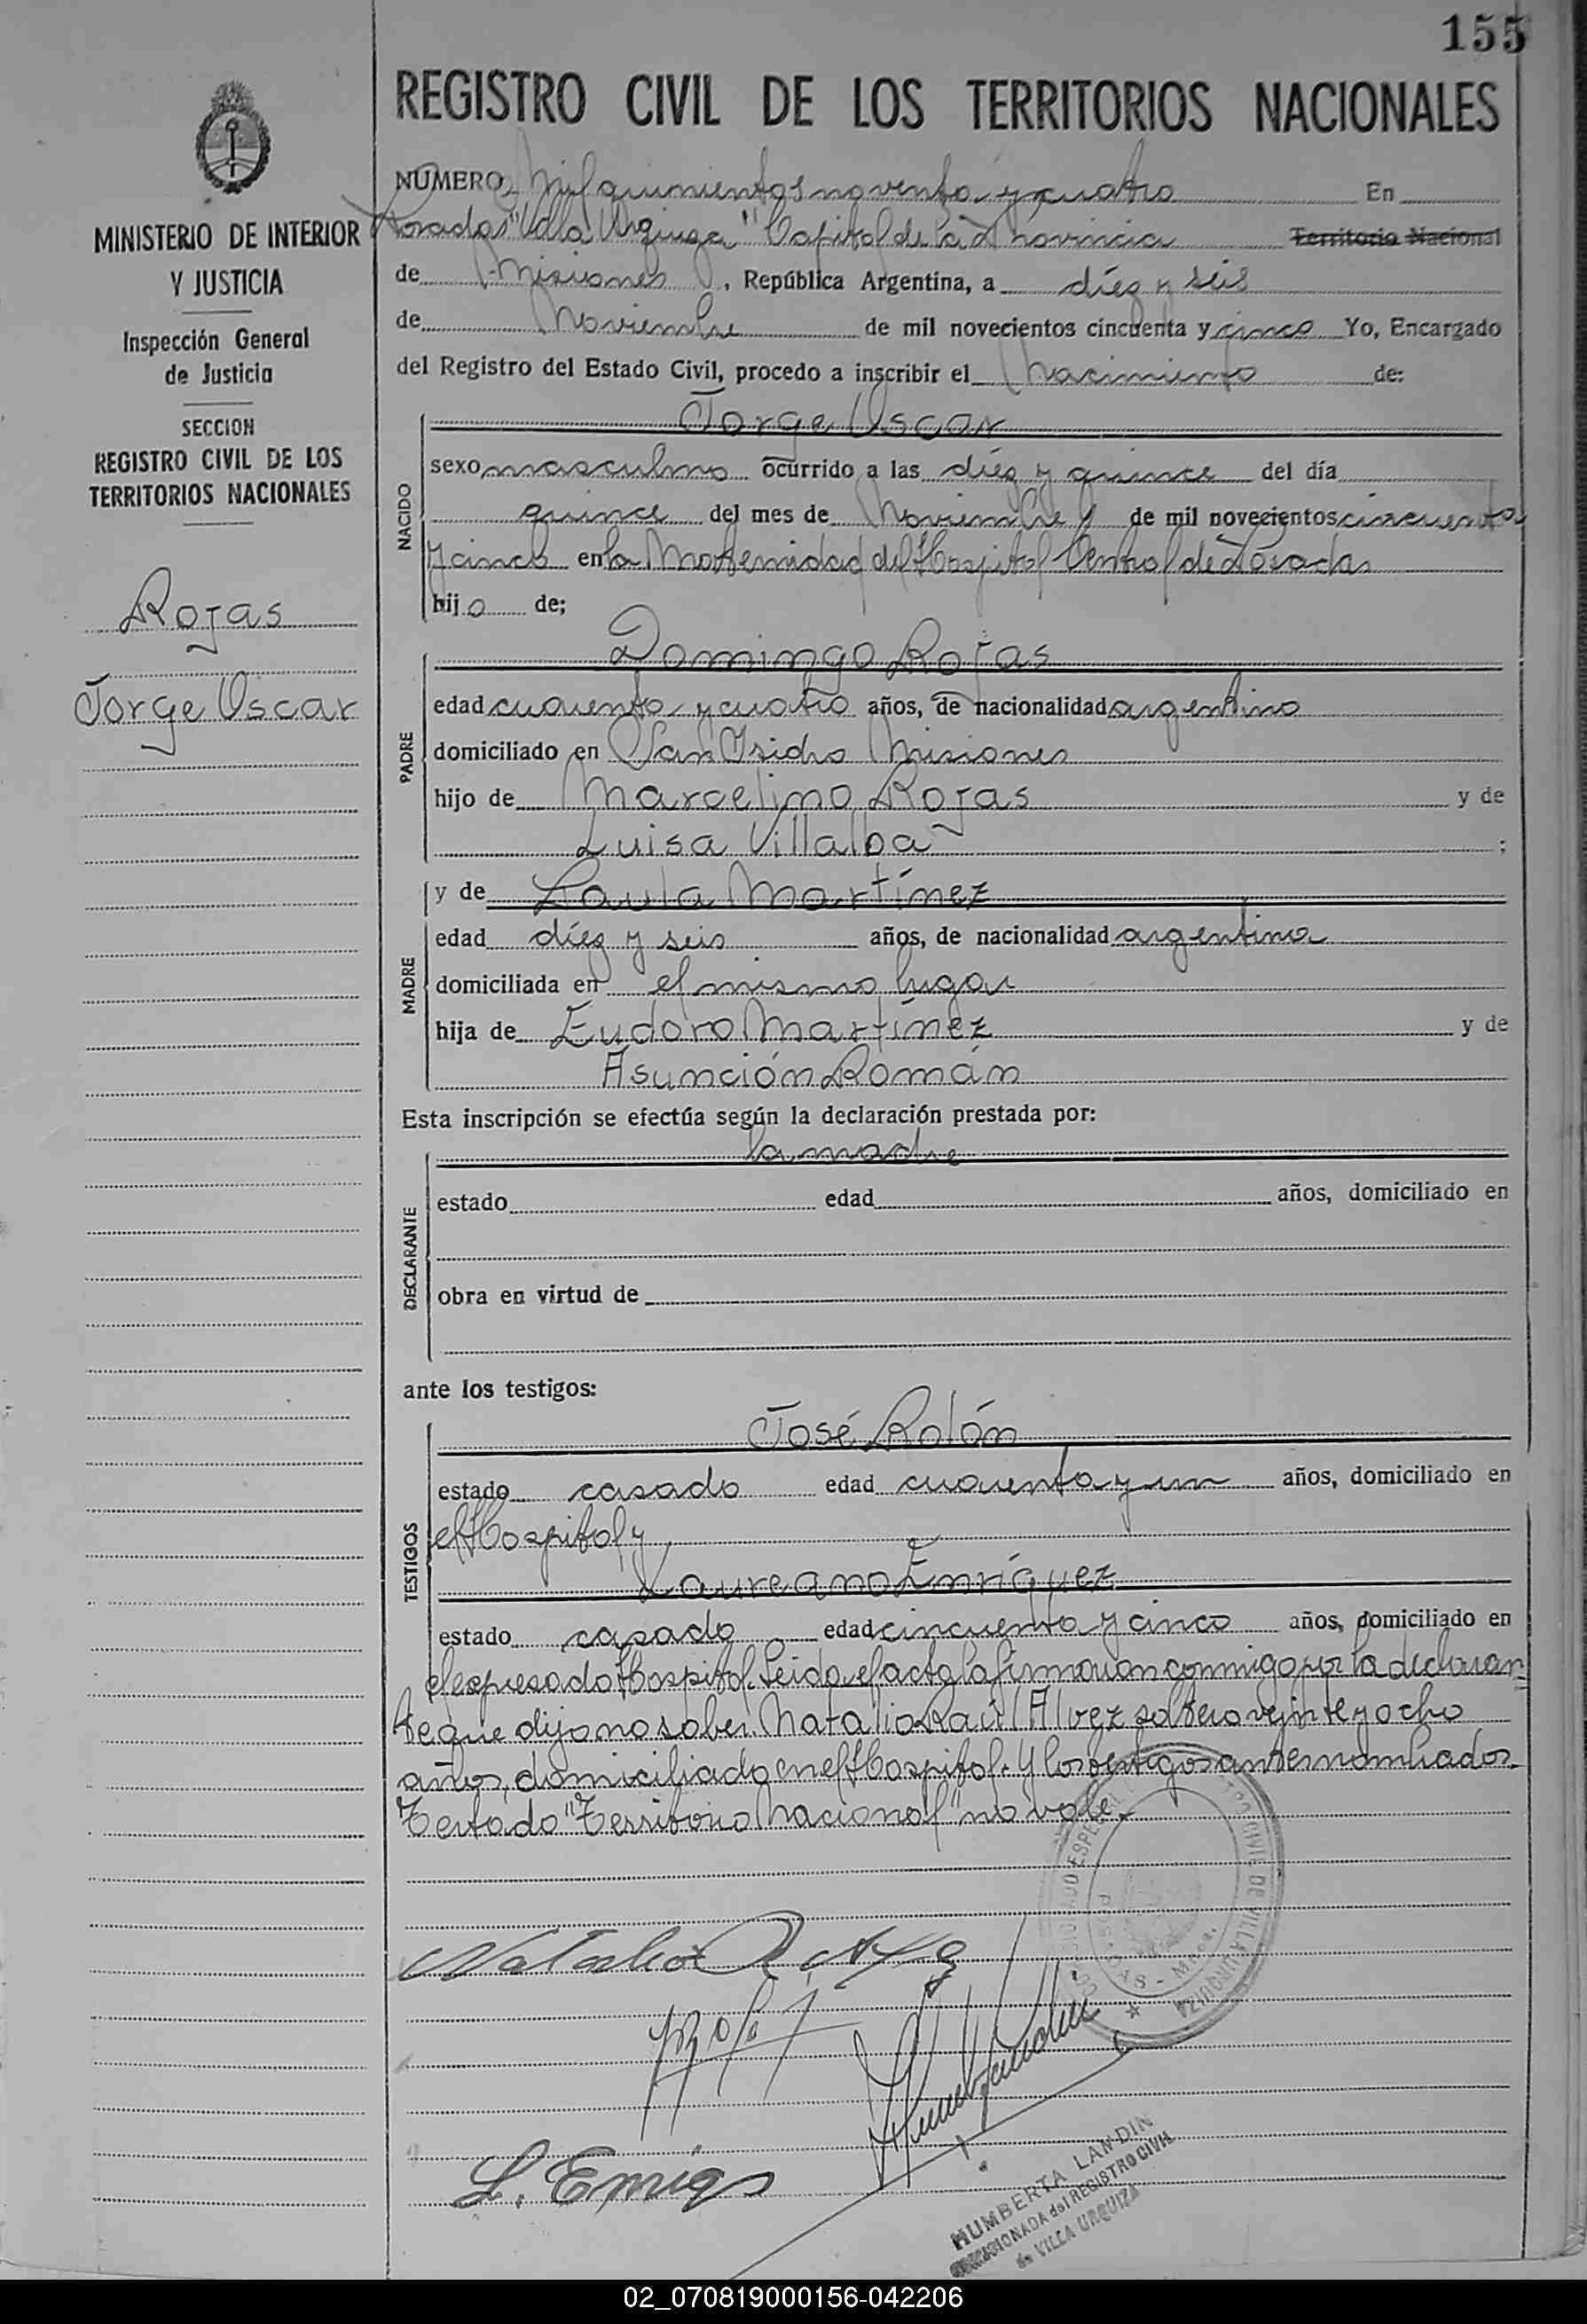 155
REGISTRO CIVIL DE LOS TERRITORIOS NACIONALES
MINISTERIO DE INTERIOR
Y JUSTICIA
Inspección General
de Justicia
SECCION
REGISTRO CIVIL DE LOS
TERRITORIOS NACIONALES
Rojas
Jorge Oscar
NUMERO Mil quinientos noventa y cuatro En
Posadas "Villa Urquiza" Capital de la Provincia Territorio Nacional
de Misiones, República Argentina, a diez y seis
de Noviembre de mil novecientos cincuenta y cinco Yo, Encargado
del Registro del Estado Civil, procedo a inscribir el Nacimiento de:
NACIDO
Jorge Oscar
sexo masculino ocurrido a las diez y quince del día
quince del mes de Noviembre de mil novecientos cincuenta
y cinco en la Maternidad del Hospital Central de Posadas
hijo de;
PADRE
Domingo Rojas
edad cuarenta y cuatro años, de nacionalidad argentino
domiciliado en San Isidro Misiones
hijo de Marcelino Rojas y de
Luisa Villalba ;
y de Paula Martínez
MADRE
edad diez y seis años, de nacionalidad argentina
domiciliada en el mismo lugar
hija de Eudoro Martínez y de
Asunción Román
Esta inscripción se efectúa según la declaración prestada por:
la madre
DECLARANTE
estado edad años, domiciliado en
obra en virtud de
ante los testigos:
TESTIGOS
José Rolón
estado casado edad cuarenta y un años, domiciliado en
el Hospital y
Laureano Enríquez
estado casado edad cincuenta y cinco años, domiciliado en
el expresado Hospital. Leida el acta la firmaron conmigo por la declaran=
te que dijo no saber. Natalio Raúl Alvez soltero veinte y ocho
años, domiciliado en el Hospital. Y los testigos antes nombrados.
Testado "Territorio Nacional" no vale.-
VILLA URQUIZA
L. Enriqs
HUMBERTA LANDIN
COMISIONADA del REGISTRO CIVIL
de VILLA URQUIZA
02_070819000156-042206